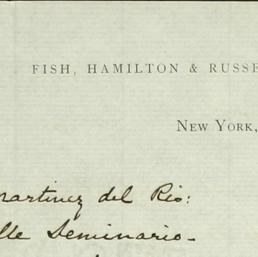 FISH, HAMILTON & RUSSE
NEW YORK,
Martinez del Rio:
lle Seminario-